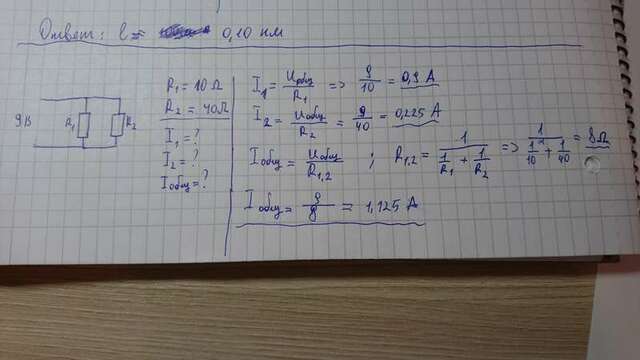 Ответ: l = 0,10 нм
9 В
R₁
R₂
R₁ = 10 Ω
R₂ = 40 Ω
I₁ = ?
I₂ = ?
Iобщ = ?
I₁ = Uобщ/R₁ => 9/10 = 0,9 A
I₂ = Uобщ/R₂ = 9/40 = 0,225 A
Iобщ = Uобщ/R₁,₂ ; R₁,₂ = 1/(1/R₁ + 1/R₂) => 1/(1/10 + 1/40) = 8 Ω
Iобщ = 9/8 = 1,125 A